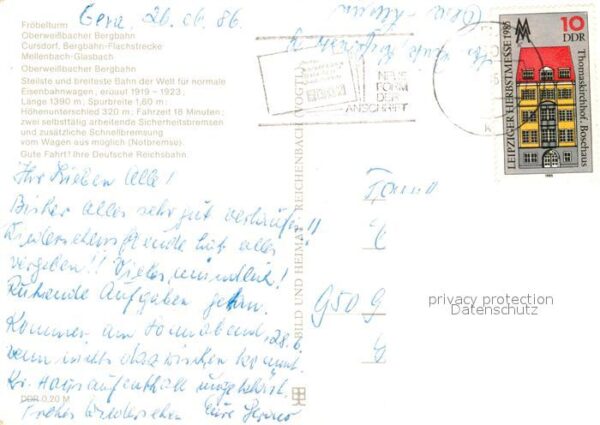 Fröbelturm
Oberweißbacher Bergbahn
Cursdorf, Bergbahn-Flachstrecke
Mellenbach-Glasbach
Oberweißbacher Bergbahn
Steilste und breiteste Bahn der Welt für normale
Eisenbahnwagen; erbaut 1919 - 1923;
Länge 1390 m; Spurbreite 1,60 m;
Höhenunterschied 320 m; Fahrzeit 18 Minuten;
zwei selbsttätig arbeitende Sicherheitsbremsen
und zusätzliche Schnellbremsung
vom Wagen aus möglich (Notbremse).
Gute Fahrt! Ihre Deutsche Reichsbahn.
Gera, 26.06.86
Ihr Lieben Alle!
Bisher alles sehr gut verlaufen!!
Wiedersehensfreude hat alles
vergeben!! Vieles mündlich!
Ruhende Aufgaben getan.
Kommen am Sonnabend, 28.6.
wenn nichts dazwischen kommt.
Frohes Wiedersehen Eure
DDR 0,20 M
BILD UND HEIMAT REICHENBACH (VOGTL)
NEUE
FORM
DER
ANSCHRIFT
Fam
950
LEIPZIGER HERBSTMESSE 1985
10
DDR
Thomaskirchhof, Bosehaus
1985
privacy protection
Datenschutz